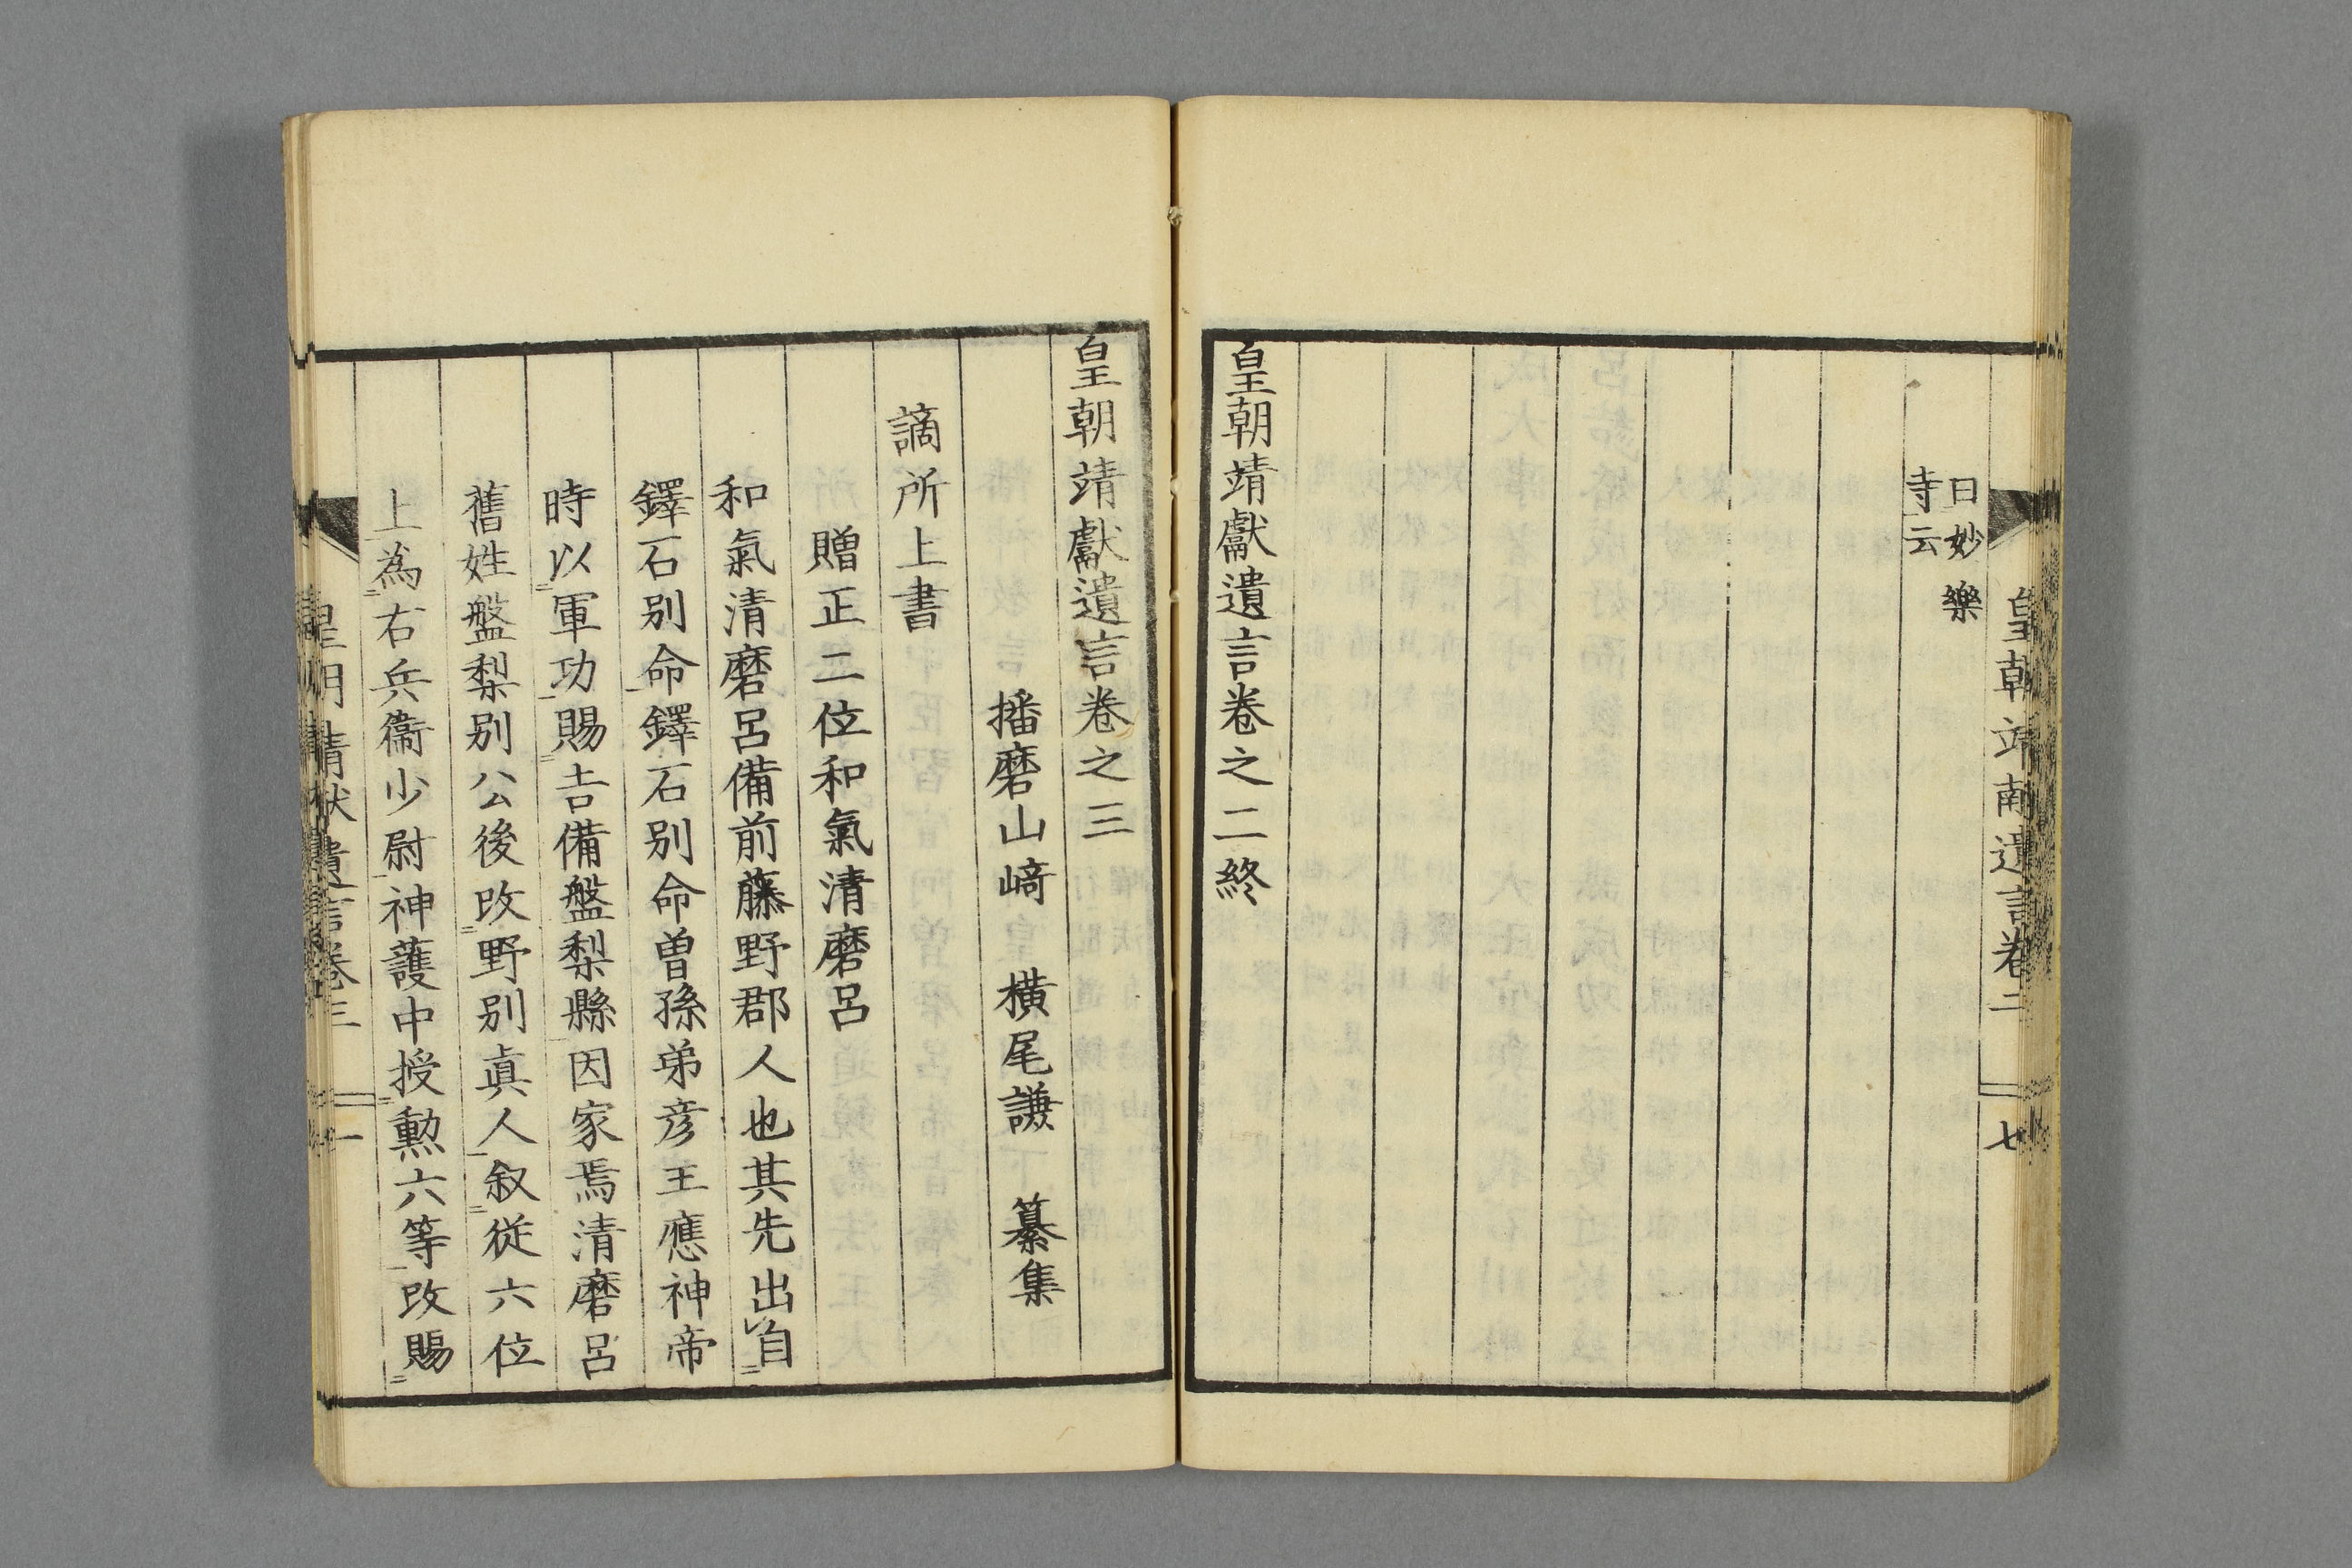 皇朝靖獻遺言卷二
七
曰妙樂
寺云
皇朝靖獻遺言卷之二終
皇朝靖獻遺言卷之三
播磨山﨑 横尾謙 纂集
謫所上書
贈正二位和氣清磨呂
和氣清磨呂備前藤野郡人也其先出自
鐸石别命鐸石别命曽孫弟彦王應神帝
時以軍功賜吉備盤梨縣因家焉清磨呂
舊姓盤梨别公後改野别真人叙従六位
上為右兵衞少尉神護中授勲六等改賜
皇朝靖献遺言卷三
一